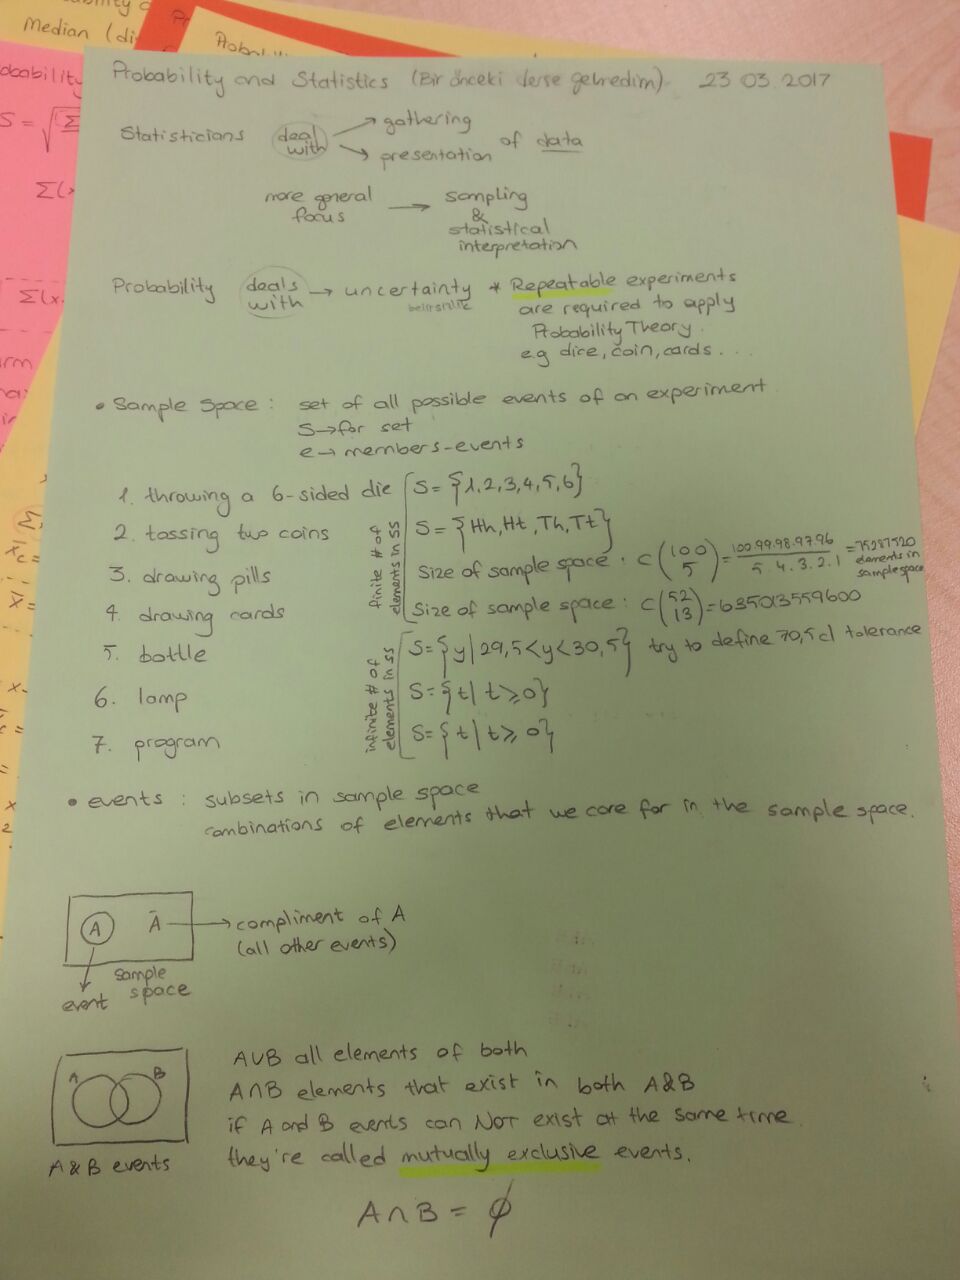 Median (di
Probability and Statistics (Bir önceki derse gelmedim) 23 03 2017
Statisticians deal with → gathering
→ presentation of data
more general focus → sampling & statistical interpretation
Probability deals with → uncertainty
belirsizlik
* Repeatable experiments
are required to apply
Probability Theory.
e.g dice, coin, cards...
• Sample Space : set of all possible events of an experiment
S → for set
e → members-events
1. throwing a 6-sided die S = {1,2,3,4,5,6}
2. tossing two coins S = {Hh, Ht, Th, Tt}
3. drawing pills Size of sample space : C(100 5) = 100.99.98.97.96 / 5.4.3.2.1 = 75287520 elements in sample space
4. drawing cards Size of sample space : C(52 13) = 635013559600
finite # of elements in ss
5. bottle S = {y | 29,5<y<30,5} try to define 70,5 cl tolerance
6. lamp S = {t | t ⩾ 0}
7. program S = {t | t ⩾ 0}
infinite # of elements in ss
• events : subsets in sample space
combinations of elements that we care for in the sample space.
A Ā → compliment of A
(all other events)
event
sample space
A B
A & B events
AUB all elements of both
A∩B elements that exist in both A&B
if A and B events can NOT exist at the same time.
they're called mutually exclusive events.
A∩B = ∅